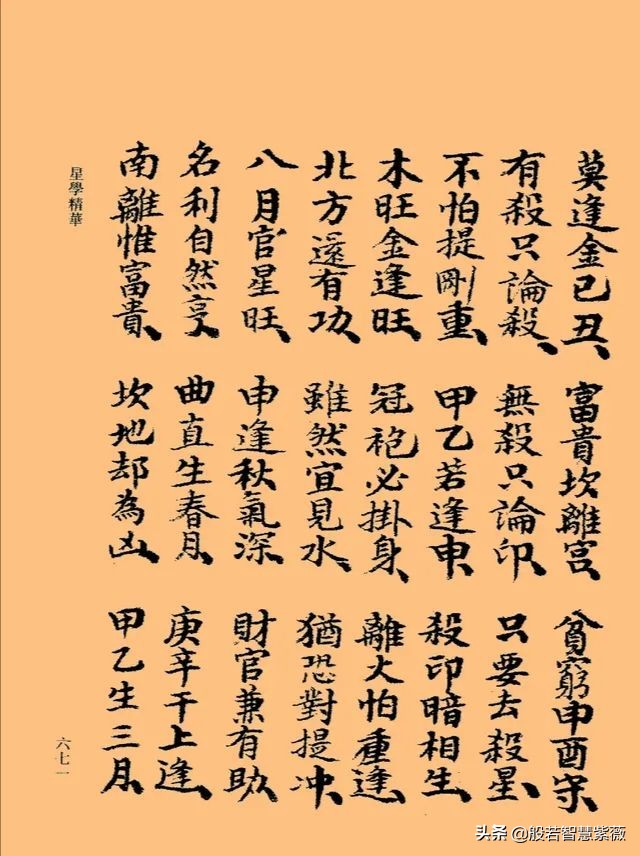 莫逢金已丑、富貴坎離宮、貧窮申酉守、
有殺只論殺、無殺只論印、只要去殺星、
不怕提剛重、甲乙若逢申、殺印暗相生、
木旺金逢旺、冠袍必掛身、離火怕重逢、
北方還有功、雖然宜見水、猶恐對提冲、
八月官星旺、申逢秋氣深、財官兼有助、
名利自然亨、曲直生春月、庚辛干上逢、
南離惟富貴、坎地却為凶、甲乙生三月、
星學精華
六七一
头条 @般若智慧紫薇